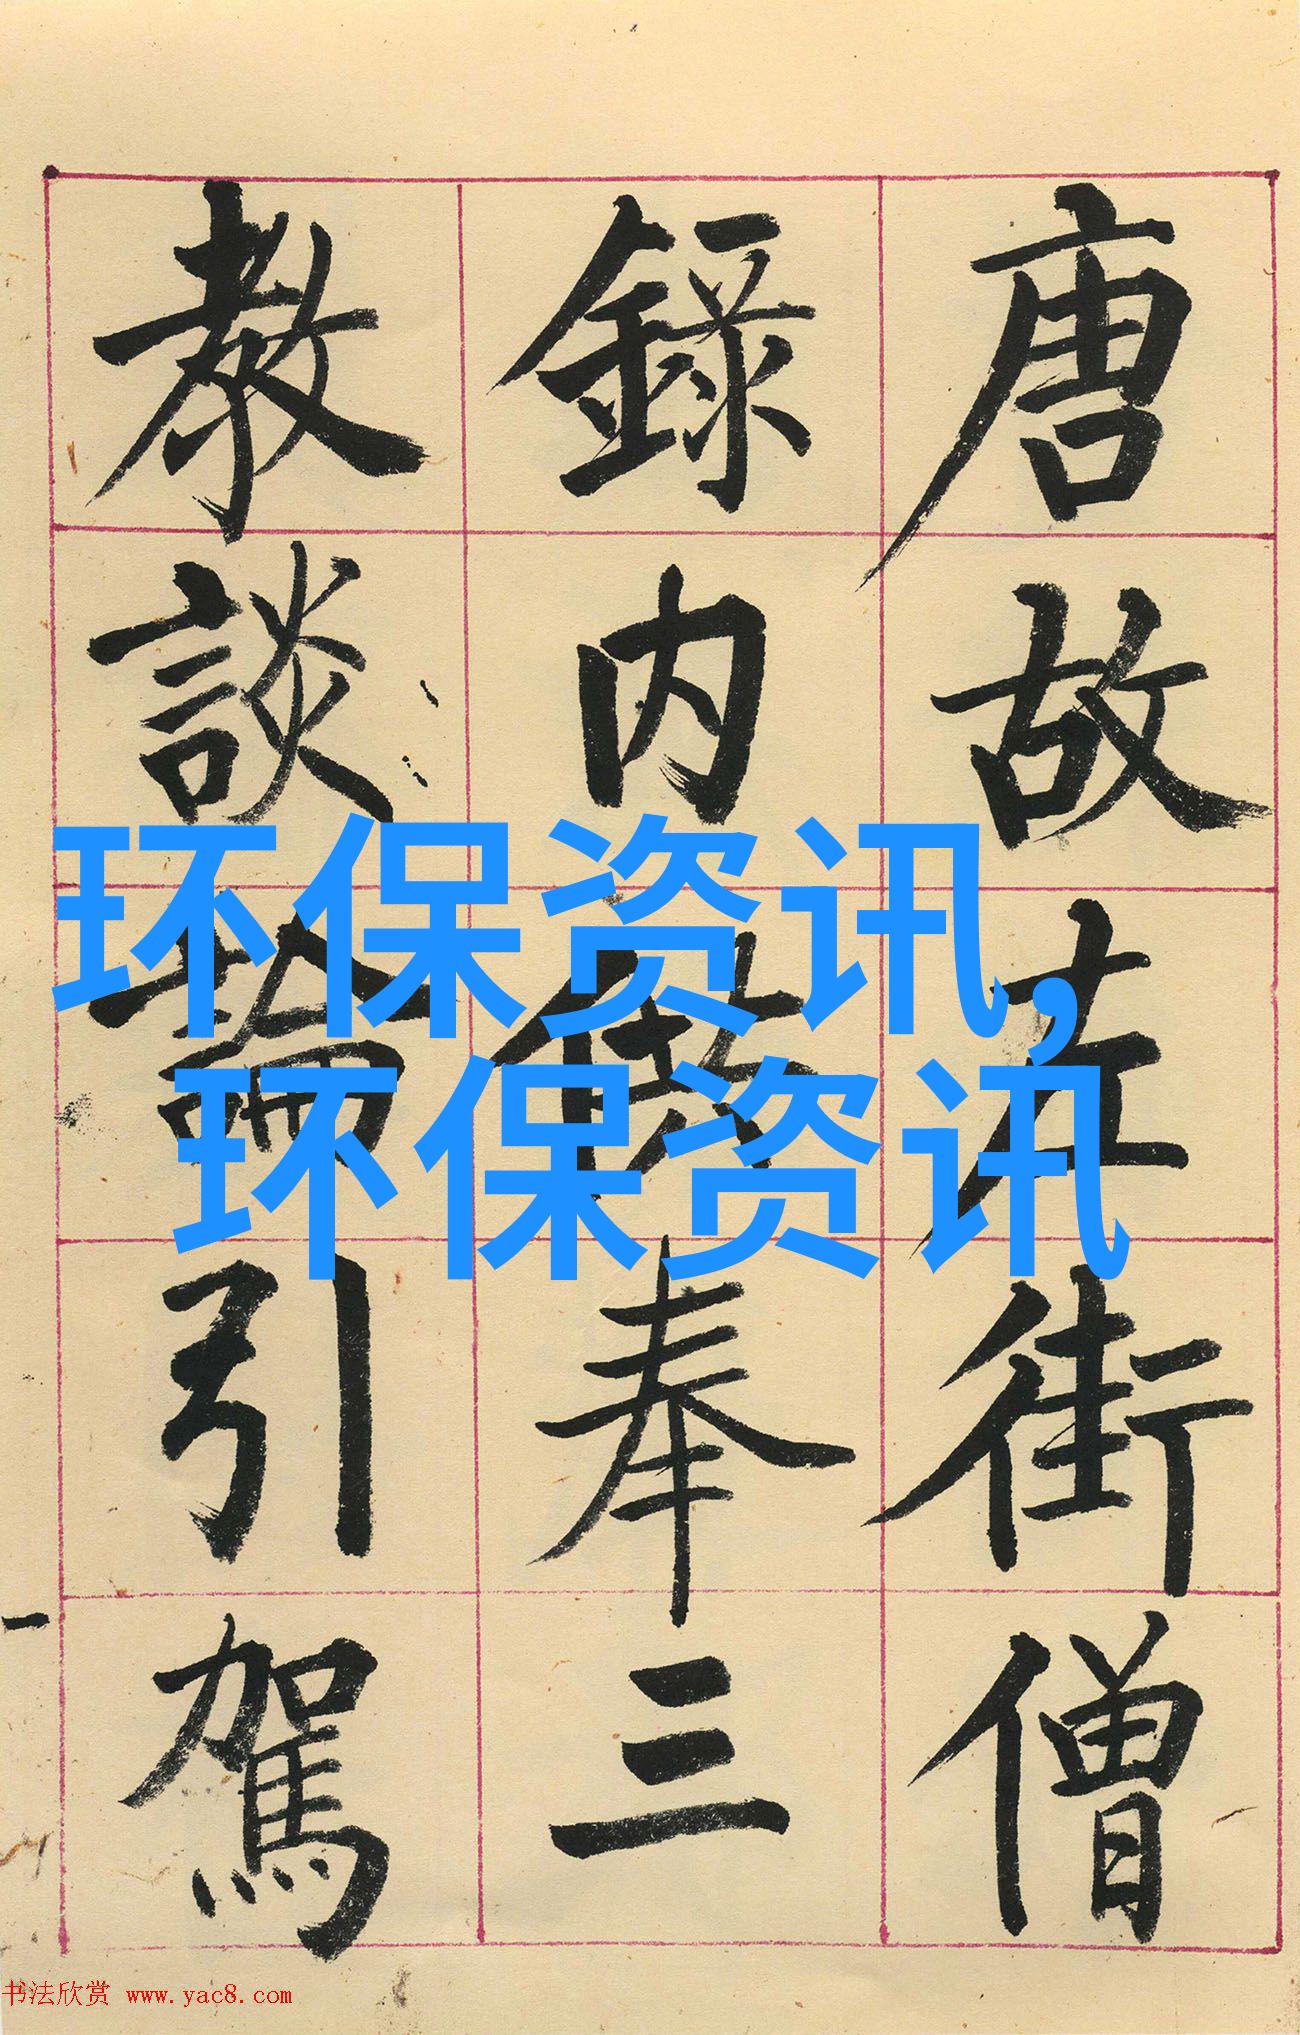 唐故左街僧
錄内供奉三
教談論引駕
环保资讯,
环保资讯
书法欣赏 www.yac8.com